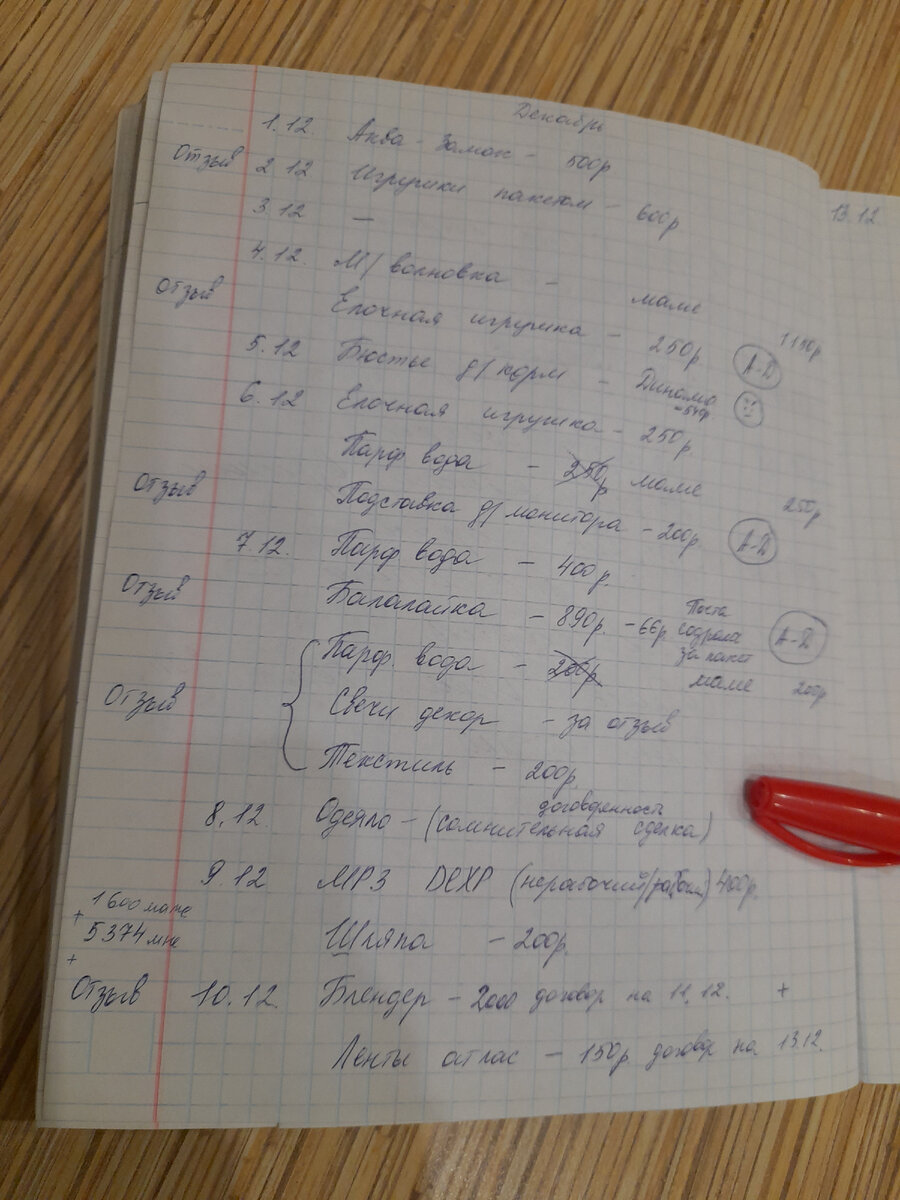 Декабрь
1.12. Аква-замок - 500р
Отзыв 2 12 Игрушки пакетом - 600р
3.12 —
4.12. М/ волновка - маме 1150р
Отзыв Елочная игрушка - 250р А-Д
5.12 Бюстье д/ корм - Динамо -540р
6.12 Елочная игрушка - 250р
Парф вода - 250р маме 250р
Отзыв Подставка д/ монитора - 200р. А-Д
7 12. Парф вода - 400р.
Отзыв Балалайка - 890р. - 66р. Почта содрала за пакет А-Д
Парф. вода - 200р маме 200р
Отзыв Свечи декор - за отзыв
Текстиль - 200р
8.12 Одеяло - (сомнительная сделка) договоренность
9.12 МРЗ DEXP (нерабочий/рабочий) 400р.
+ 1600 маме
5374 мне Шляпа - 200р.
+
Отзыв 10.12. Блендер - 2000 договор на 11.12. +
Ленты атлас - 150р договор на 13.12.
13.12